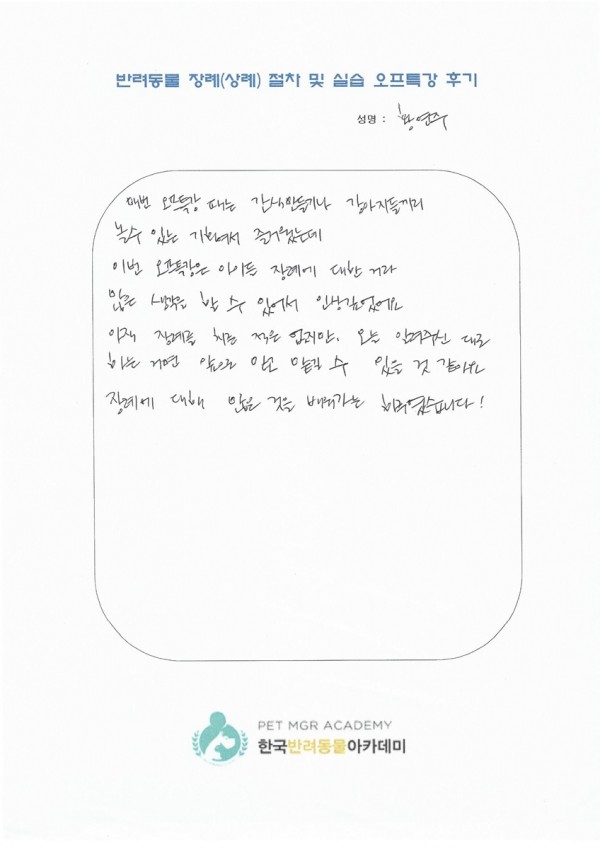 반려동물 장례(상례) 절차 및 실습 오프특강 후기
성명 : 황연주
매번 오프특강 때는 간식만들기나 강아지들끼리
놀수 있는 기회여서 즐거웠는데
이번 오프특강은 아이들 장례에 대한 거라
많은 생각을 할 수 있어서 인상깊었어요
아직 장례를 치른 적은 없지만, 오늘 알려주신 대로
하는 거면 앞으로 믿고 맡길 수 있을 것 같아요
장례에 대해 많은 것을 배워가는 하루였습니다!
PET MGR ACADEMY
한국반려동물아카데미